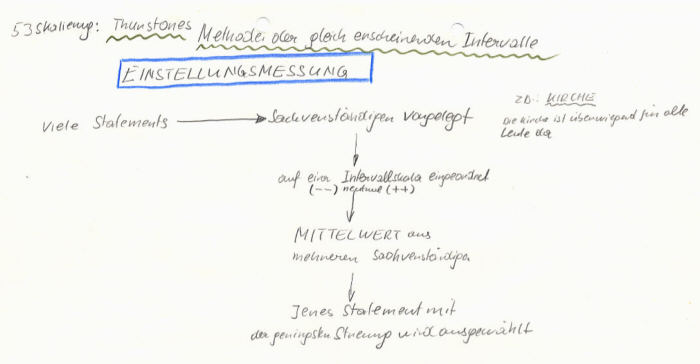 53 Skalierung: Thurstones Methode der gleich erscheinenden Intervalle
EINSTELLUNGSMESSUNG
zB.: KIRCHE
Viele Statements → Sachverständigen vorgelegt
Die Kirche ist überwiegend für alte
Leute da
auf einer Intervallskala eingeordnet
(--) neutral (++)
MITTELWERT aus
mehreren Sachverständigen
Jenes Statement mit
der geringsten Streuung wird ausgewählt